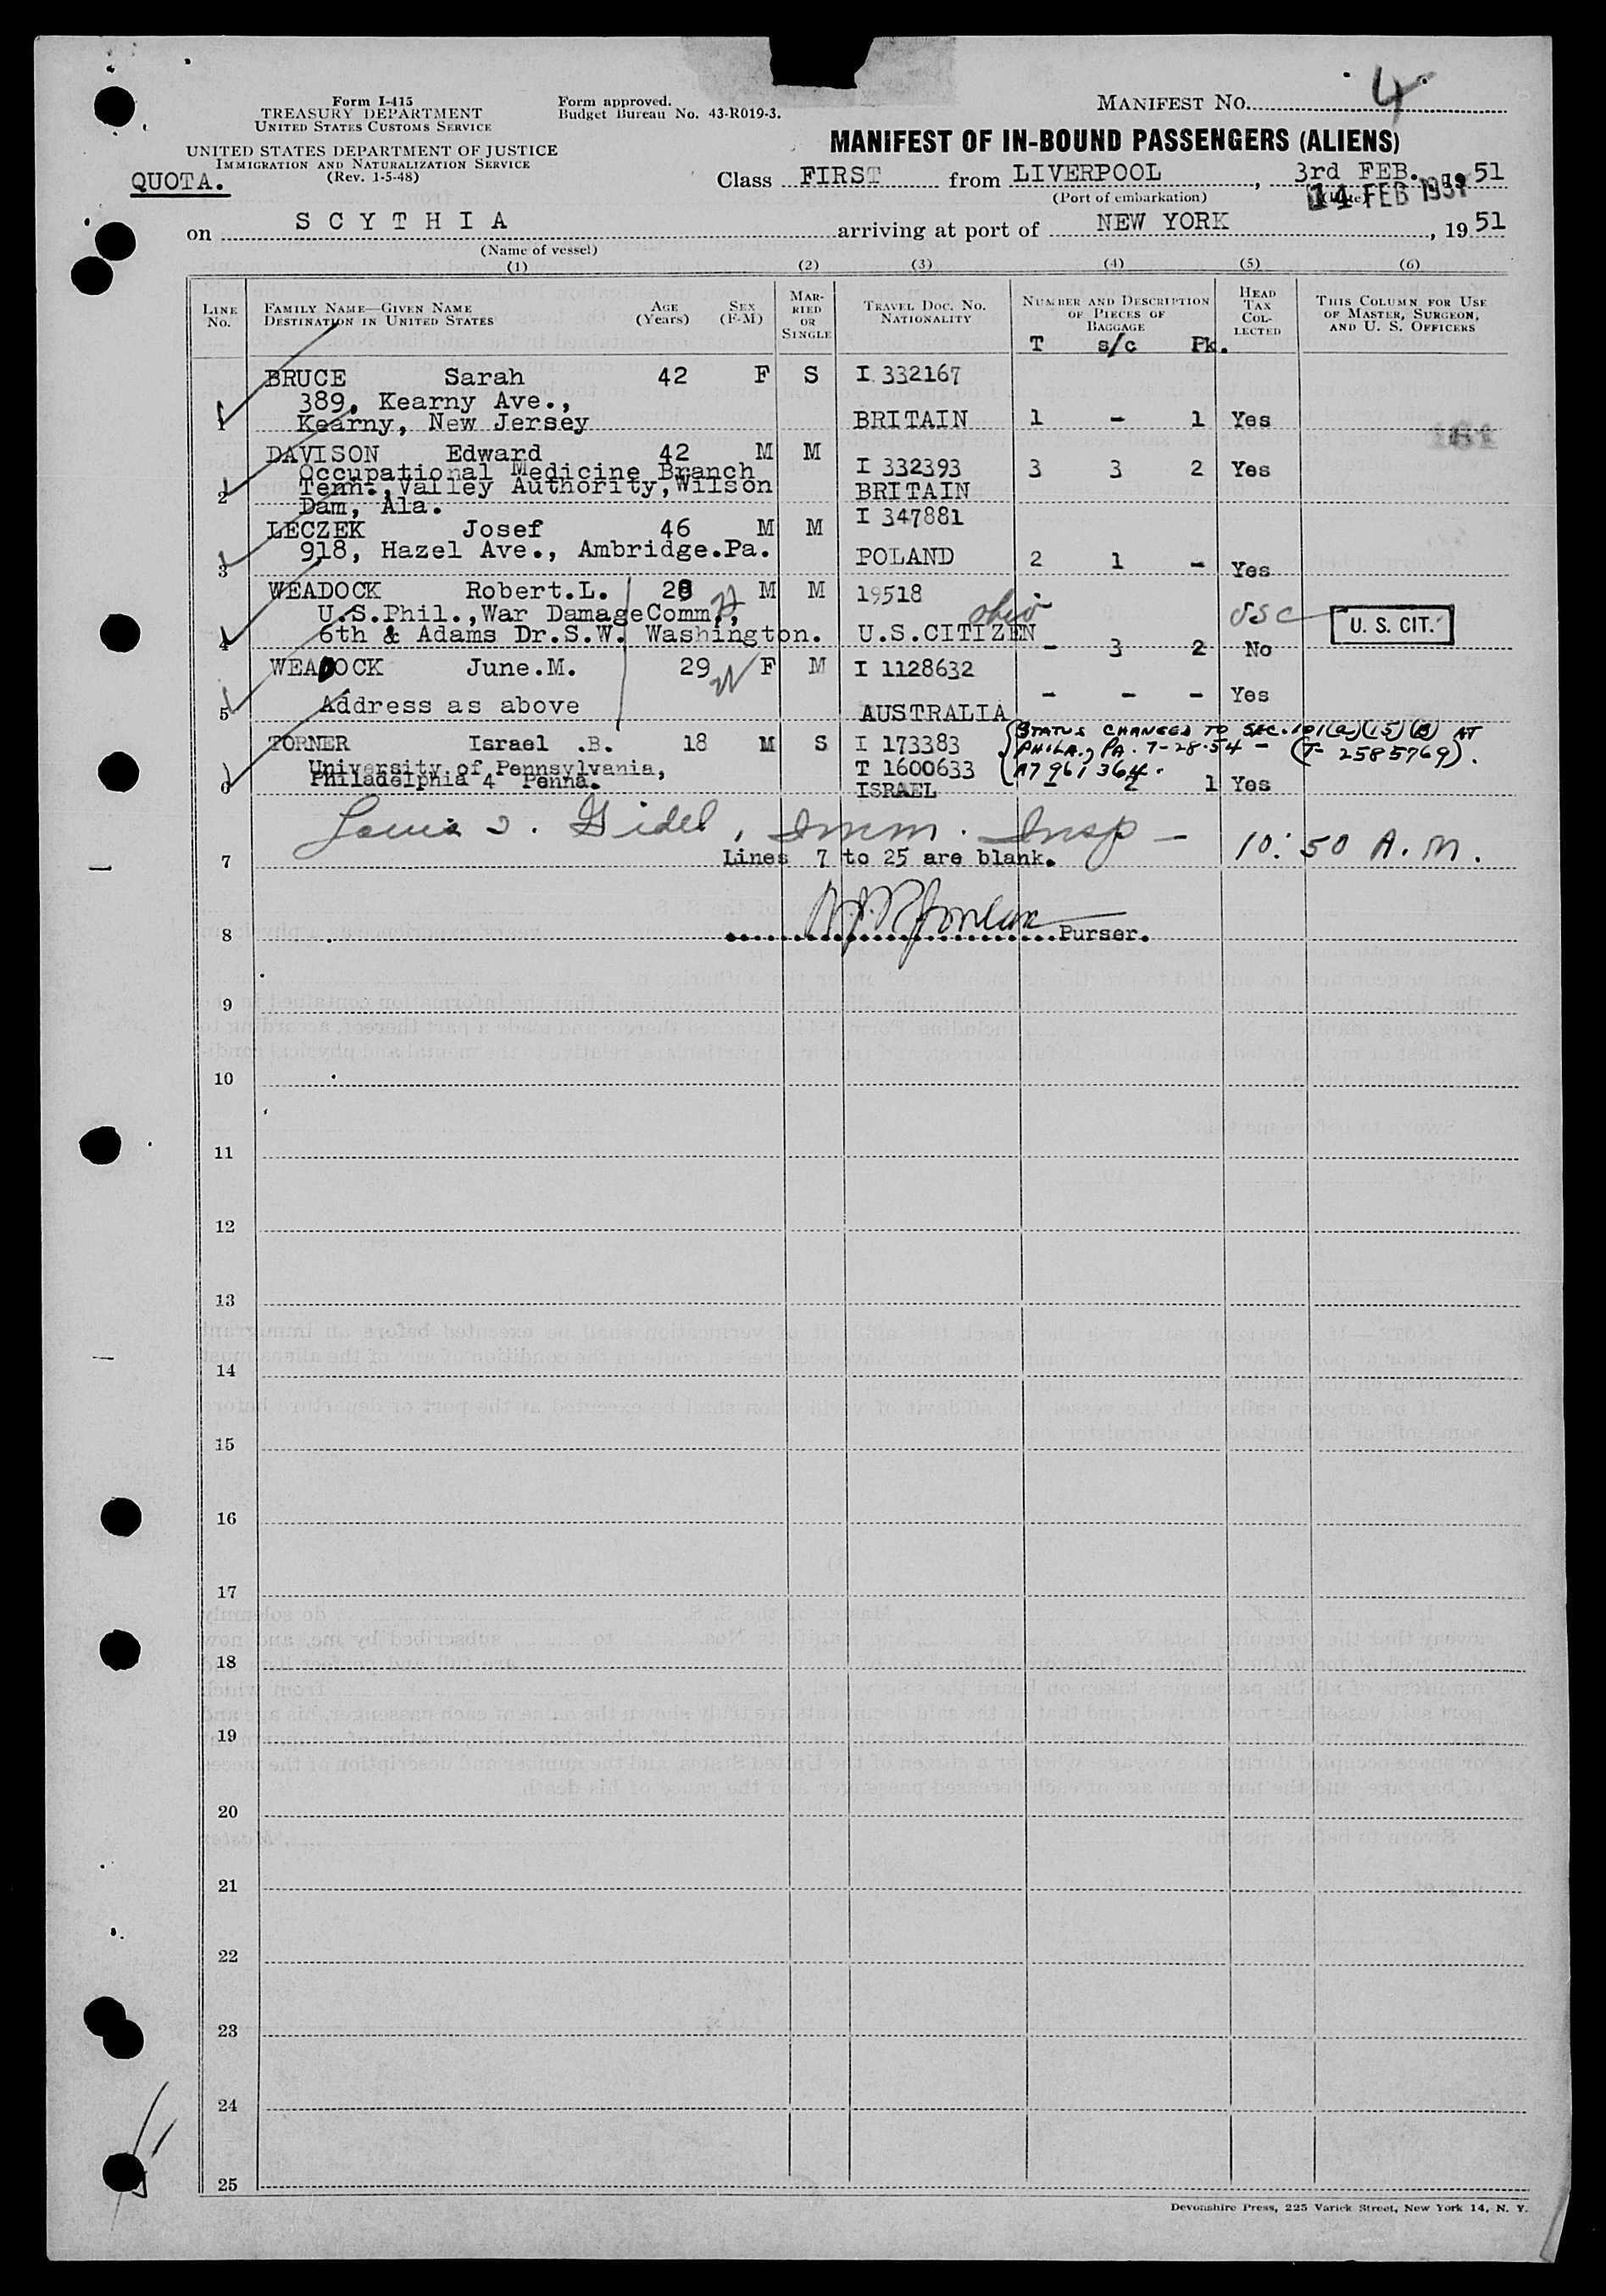 Form I-415
TREASURY DEPARTMENT
UNITED STATES CUSTOMS SERVICE
UNITED STATES DEPARTMENT OF JUSTICE
IMMIGRATION AND NATURALIZATION SERVICE
(Rev. 1-5-48)
QUOTA.
Form approved.
Budget Bureau No. 43-R019-3.
MANIFEST NO. 4
MANIFEST OF IN-BOUND PASSENGERS (ALIENS)
Class FIRST from LIVERPOOL, 3rd FEB. 1951
(Port of embarkation) (Date)
14 FEB 1951
on SCYTHIA arriving at port of NEW YORK, 1951
(Name of vessel)
(1) (2) (3) (4) (5) (6)
LINE No. FAMILY NAME—GIVEN NAME DESTINATION IN UNITED STATES AGE (Years) SEX (F-M) MARRIED OR SINGLE TRAVEL DOC. NO. NATIONALITY NUMBER AND DESCRIPTION OF PIECES OF BAGGAGE HEAD TAX COLLECTED THIS COLUMN FOR USE OF MASTER, SURGEON, AND U. S. OFFICERS
T s/c Pk.
BRUCE Sarah 42 F S I 332167
389, Kearny Ave.,
1 Kearny, New Jersey BRITAIN 1 - 1 Yes
DAVISON Edward 42 M M
Occupational Medicine Branch I 332393 3 3 2 Yes
2 Tenn., Valley Authority, Wilson BRITAIN
Dam, Ala.
LECZEK Josef 46 M M I 347881
3 918, Hazel Ave., Ambridge.Pa. POLAND 2 1 - Yes
WEADOCK Robert.L. 28 M M 19518
U.S.Phil.,War DamageComm., ohio USC U. S. CIT.
4 6th & Adams Dr.S.W. Washington. U.S.CITIZEN - 3 2 No
WEADOCK June.M. 29 F M I 1128632
5 Address as above AUSTRALIA - - - Yes
STATUS CHANGED TO SEC. 101(a)(15)(B) AT
PHILA., PA. 7-28-54 - (T- 2585769).
A7 961 364.
TORNER Israel .B. 18 M S I 173383
University of Pennsylvania, T 1600633
6 Philadelphia 4 Penna. ISRAEL - 2 1 Yes
Imm. Insp - 10:50 A.M.
7 Lines 7 to 25 are blank.
8 Purser.
9
10
11
12
13
14
15
16
17
18
19
20
21
22
23
24
25
Devonshire Press, 225 Varick Street, New York 14, N. Y.